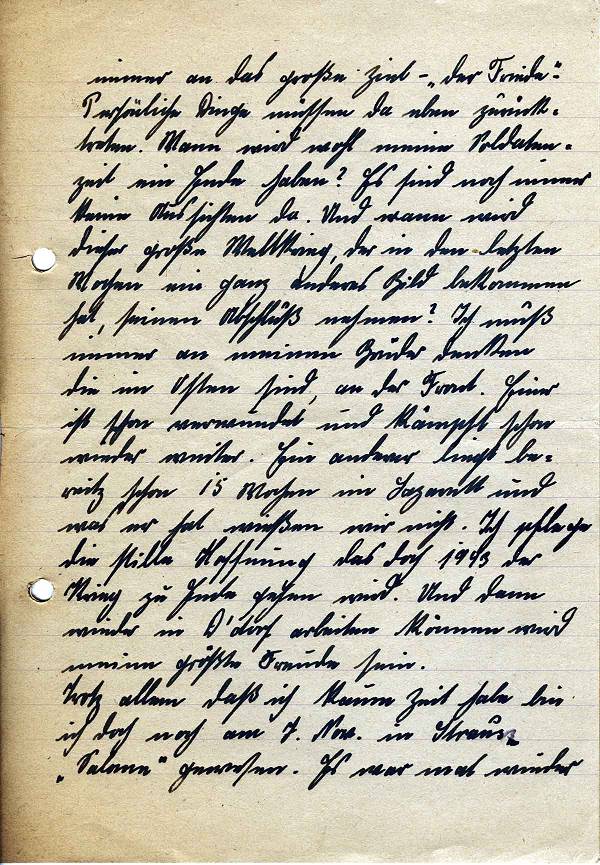 immer an das große Ziel – „der Friede".
Persönliche Dinge müssen da eben zurück-
treten. Wann wird wohl meine Soldaten-
zeit ein Ende haben? Es sind noch immer
keine Aussichten da. Und wann wird
dieser große Weltkrieg, der in den letzten
Wochen ein ganz anderes Bild bekommen
hat, seinen Abschluß nehmen? Ich muß
immer an meinen Brüder denken
die im Osten sind, an der Front. Einer
ist schon verwundet und kämpft schon
wieder weiter. Ein anderer liegt be-
reits schon 15 Wochen im Lazarett und
was er hat wießen wir nicht. Ich pflege
die stille Hoffnung das doch 1943 der
Krieg zu Ende gehen wird. Und dann
wieder in D'dorf arbeiten können wird
meine größte Freude sein.
Trotz allem daß ich kaum Zeit habe bin
ich doch noch am 7. Nov. in Strauss
„Salome" gewesen. Es war mal wieder